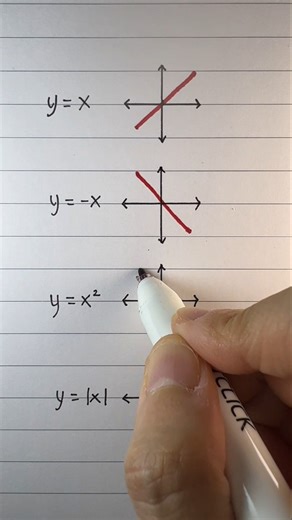 y = x
y = -x
y = x²
y = |x|
CLICK